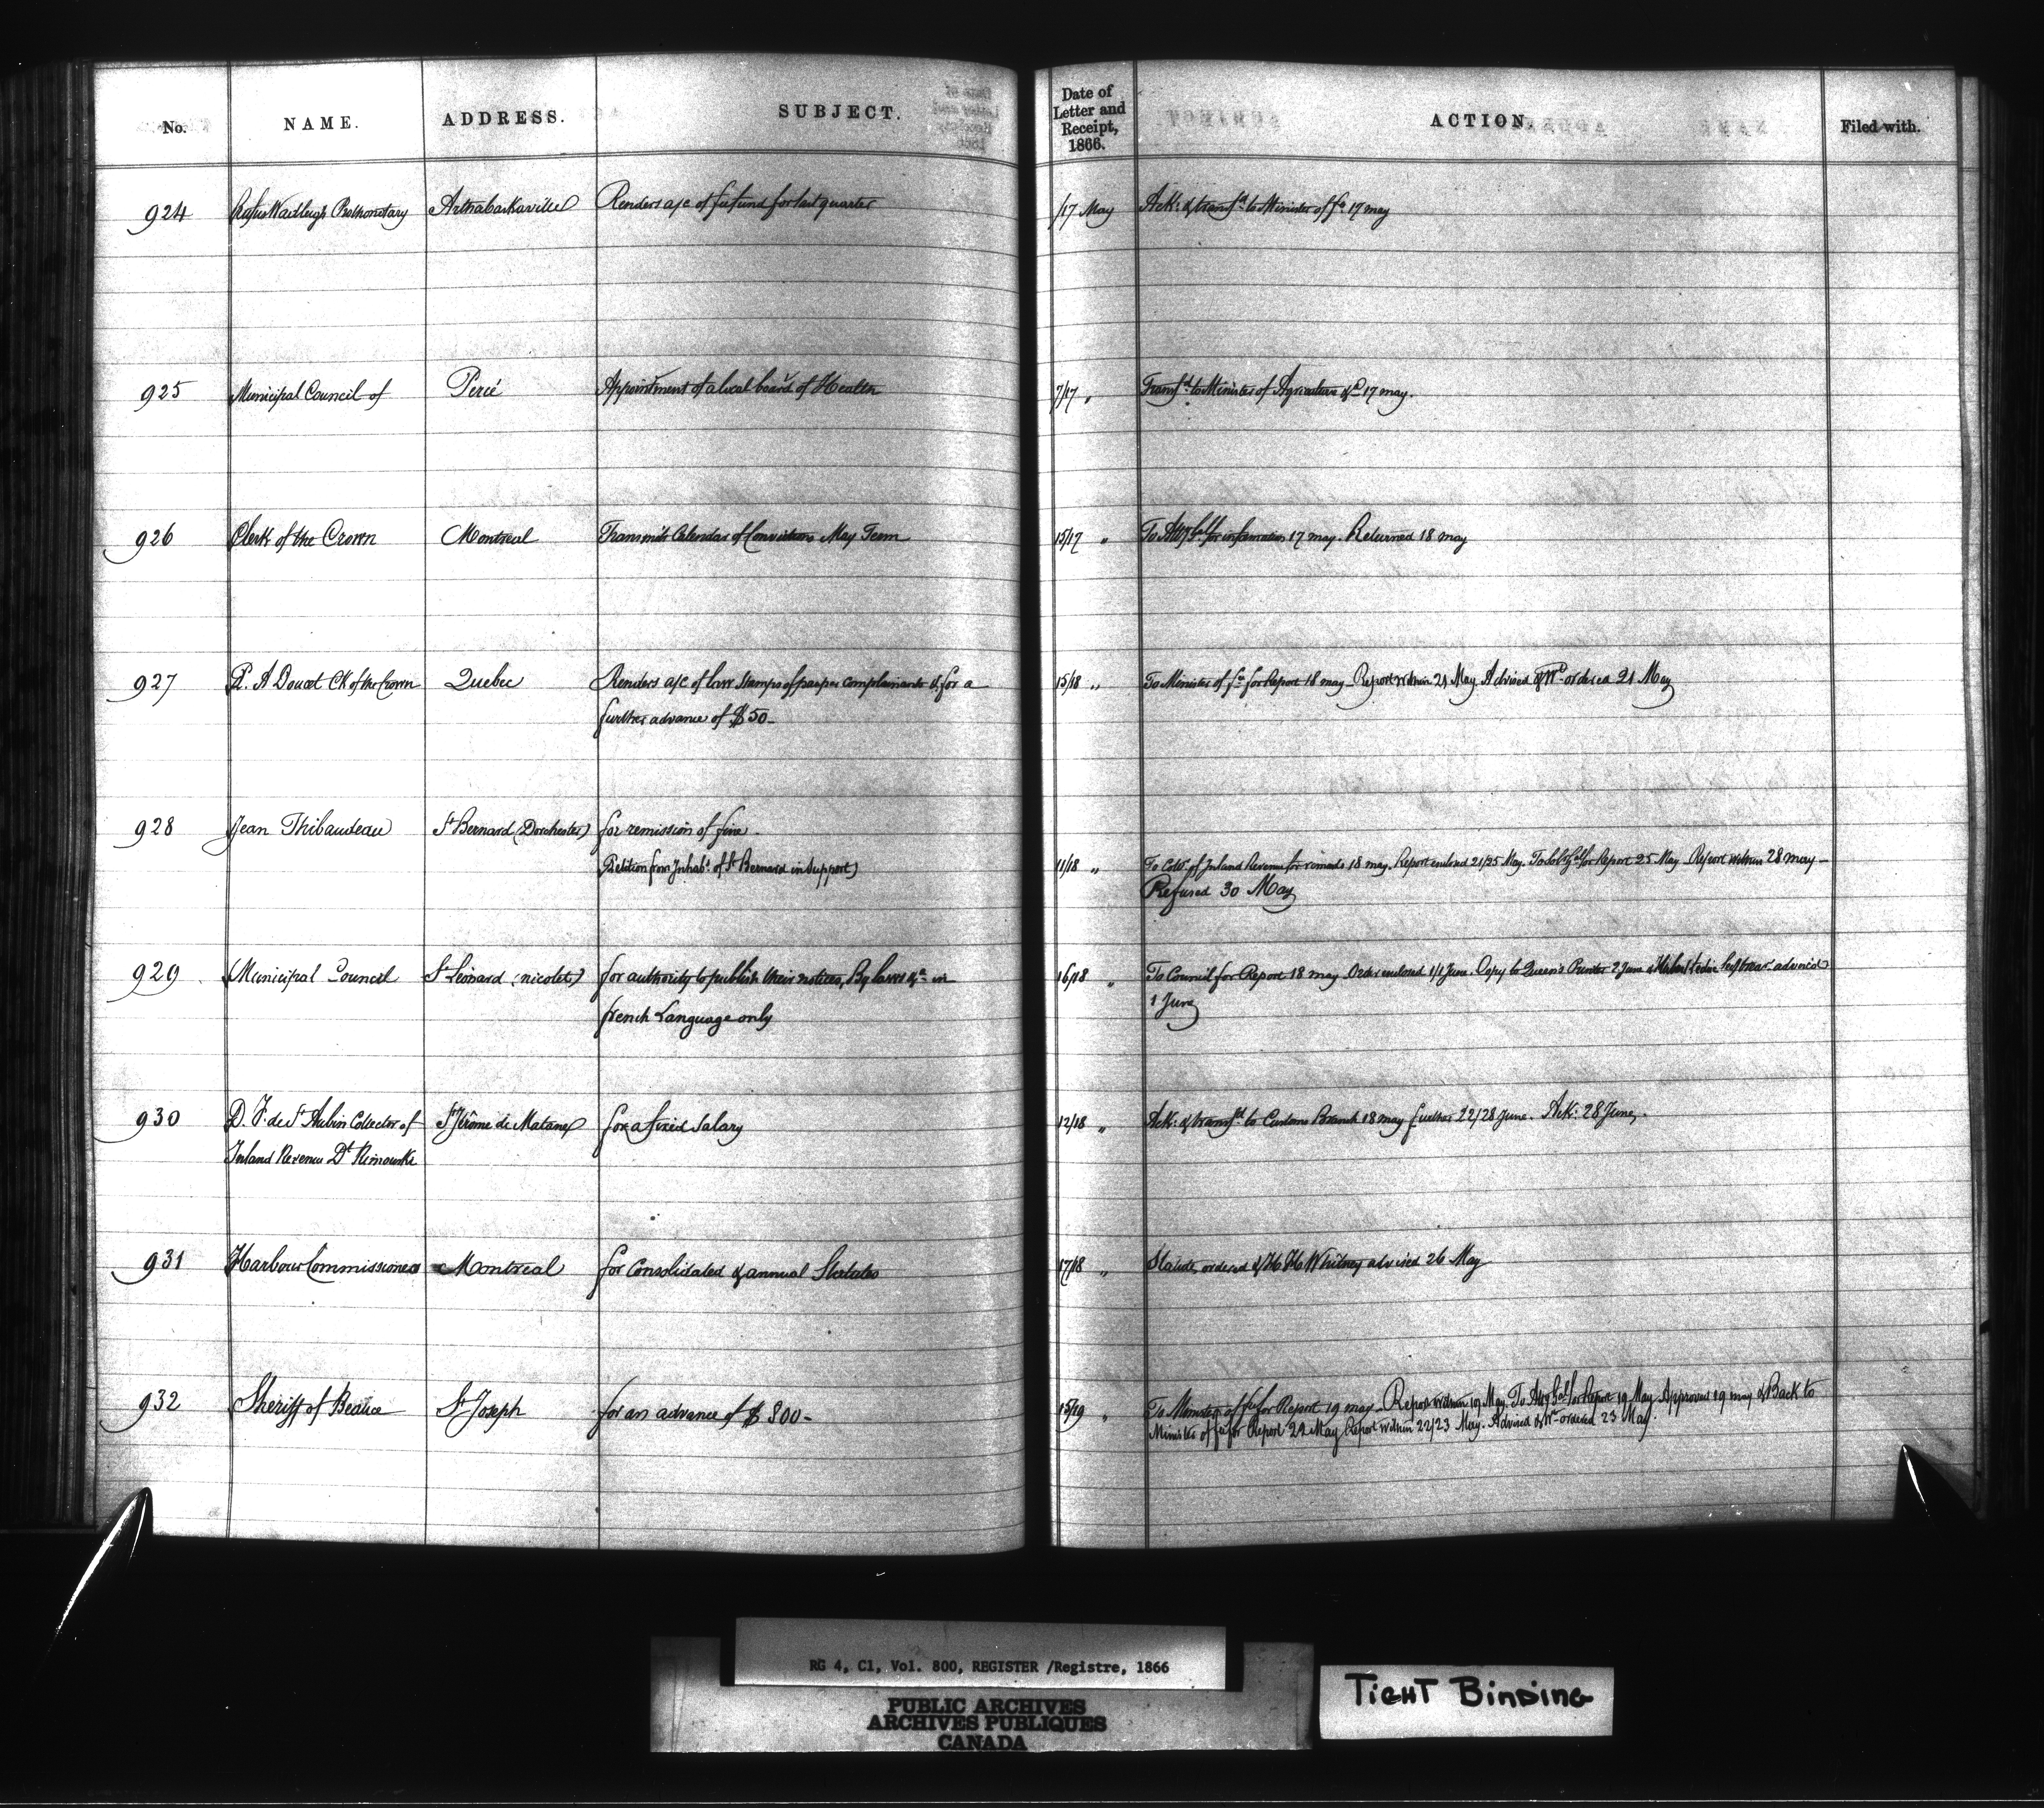 No. NAME. ADDRESS. SUBJECT. Date of Letter and Receipt, 1866. ACTION. Filed with.
924 Rufus Wadleigh Prothonotary Arthabaskaville Renders a/c of fee fund for last quarter /17 May Ack: & transfd to Minister of fce 17 may
925 Municipal Council of Percé Appointment of a local board of Health 7/17 " Transfd to Minister of Agriculture &a 17 may.
926 Clerk of the Crown Montreal Transmits Calendar of Convictions May Term 15/17 " To Atty Gl for information 17 may. Returned 18 may
927 P. A Doucet Ck of the Crown Quebec Renders a/c of law stamps of pauper complainants & for a 15/18 " To Minister of fce for Report 18 may – Report within 21 May. Advised & Wt ordered 21 May
further advance of $50–
928 Jean Thibaudeau St Bernard (Dorchester) for remission of fine –
Petition from Inhabts of St Bernard in Support) 11/18 " To Colr of Inland Revenue for remarks 18 may. Report enclosed 21/25 May. To Sol Gl for Report 25 May – Report within 28 may –
Refused 30 May
929 Municipal Council St Léonard (nicolet) for authority to publish their notices, By laws &a in 16/18 " To Council for Report 18 may Order enclosed 1/1 June. Copy to Queen's Printer 2 June & advised
french Language only 1 June
930 D. F. de St Aubin Collector of St Jérôme de Matane for a fixed Salary 12/18 " Ack: & transfd to Customs Branch 18 may further 22/28 June. Ack: 28 June.
Inland Revenue Dt Rimouski
931 Harbour Commissioners Montreal for Consolidated & annual Statutes 17/18 " Statutes ordered & H H Whitney advised 26 May
932 Sheriff of Beauce St Joseph for an advance of $800– 15/19 " To Minister of fce for Report 19 may – Report within 19 May. To Atty Gal for Report 19 May Approved 19 may & Back to
Minister of fce for Report 22 May Report within 22/23 May. Advised & Wt ordered 23 May.
RG 4, C1, Vol. 800, REGISTER /Registre, 1866
PUBLIC ARCHIVES
ARCHIVES PUBLIQUES
CANADA
TIGHT BINDING